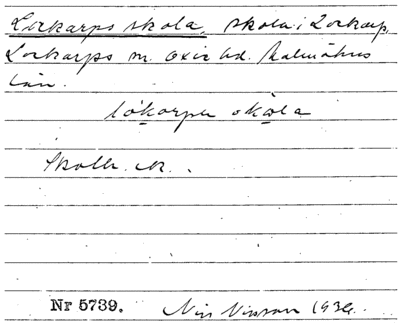 Lockarps skola, skola i Lockarp,
Lockarps sn. Oxie hd. Malmöhus
län.
låkarps skola
Nr 5739. Nils Nilsson 1932.